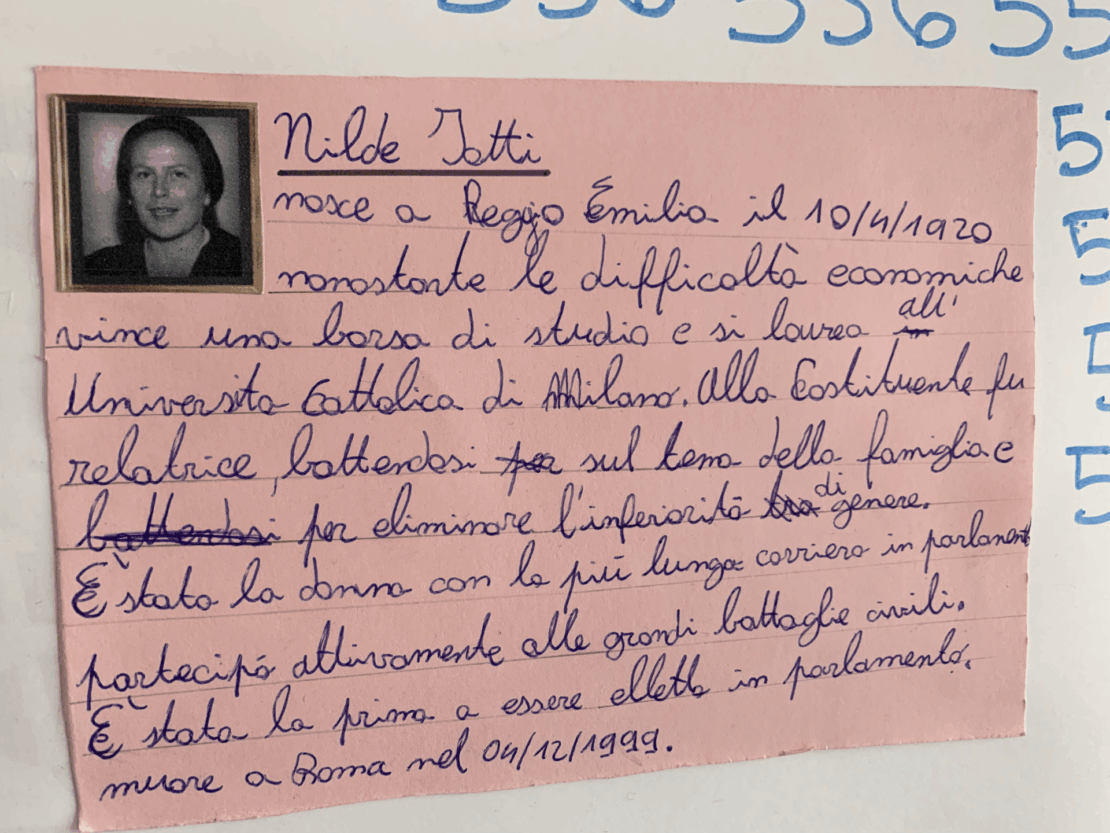 556 556 55
Nilde Iotti
nasce a Reggio Emilia il 10/4/1920
nonostante le difficoltà economiche
vince una borsa di studio e si laurea all'
Università Cattolica di Milano. Alla Costituente fu
relatrice, battendosi sul tema della famiglia e
per eliminare l'inferiorità di genere.
È stata la donna con la più lunga carriera in parlament
partecipò attivamente alle grandi battaglie civili.
È stata la prima a essere elletta in parlamento.
muore a Roma nel 04/12/1999.
5
5
5
5